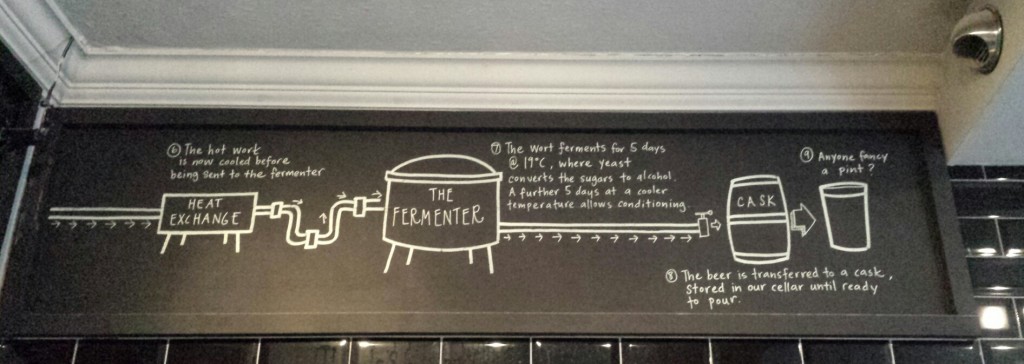 ⑥ The hot wort
is now cooled before
being sent to the fermenter
HEAT
EXCHANGE
THE
FERMENTER
⑦ The wort ferments for 5 days
@ 19°C, where yeast
converts the sugars to alcohol.
A further 5 days at a cooler
temperature allows conditioning.
CASK
⑧ The beer is transferred to a cask,
stored in our cellar until ready
to pour.
⑨ Anyone fancy
a pint?